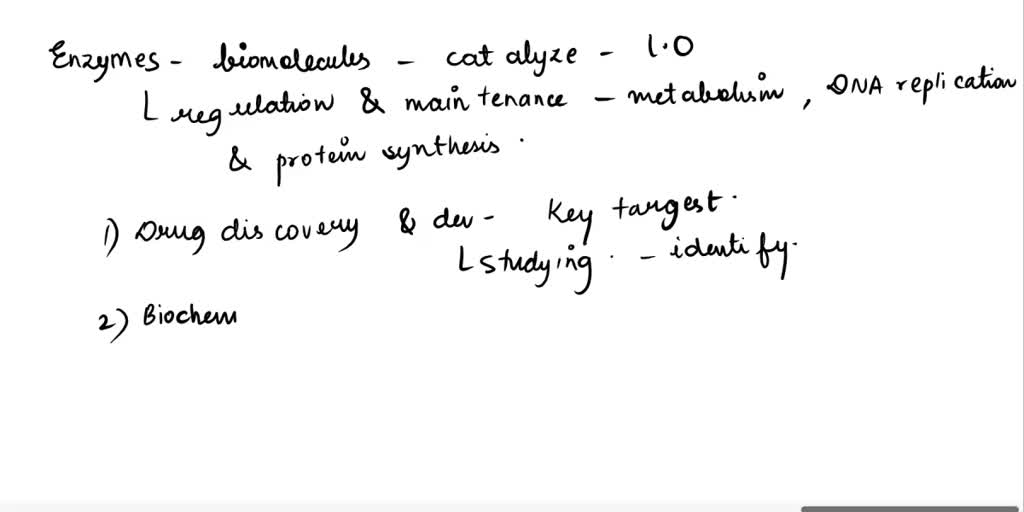 Enzymes - biomolecules - catalyze - l.O
L regulation & maintenance - metabolism, DNA replication
& protein synthesis.
1) Drug discovery & dev - Key targest.
L studying. - identify.
2) Biochem